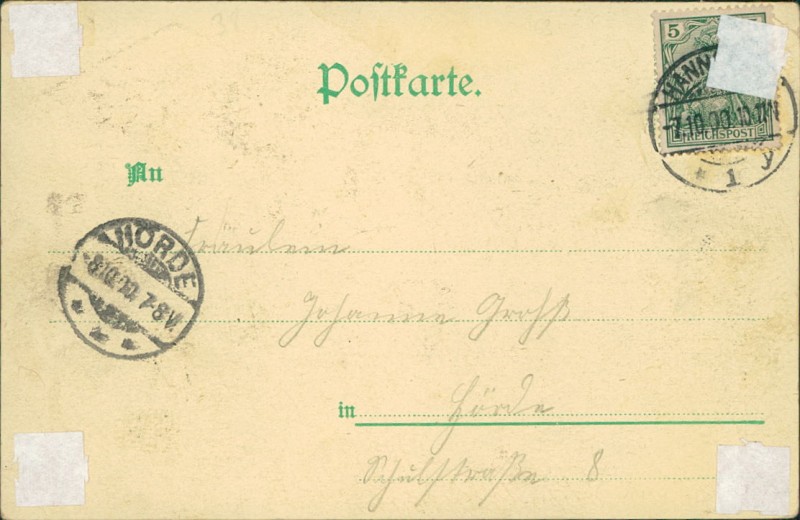 Postkarte.
5
HANN
-7.10.00.10-11V
REICHSPOST
* 1 y
An
HÖRDE
8.10.00. 7-8V.
* * *
Fräulein
Johanne Groß
in Hörde
Schulstraße 8